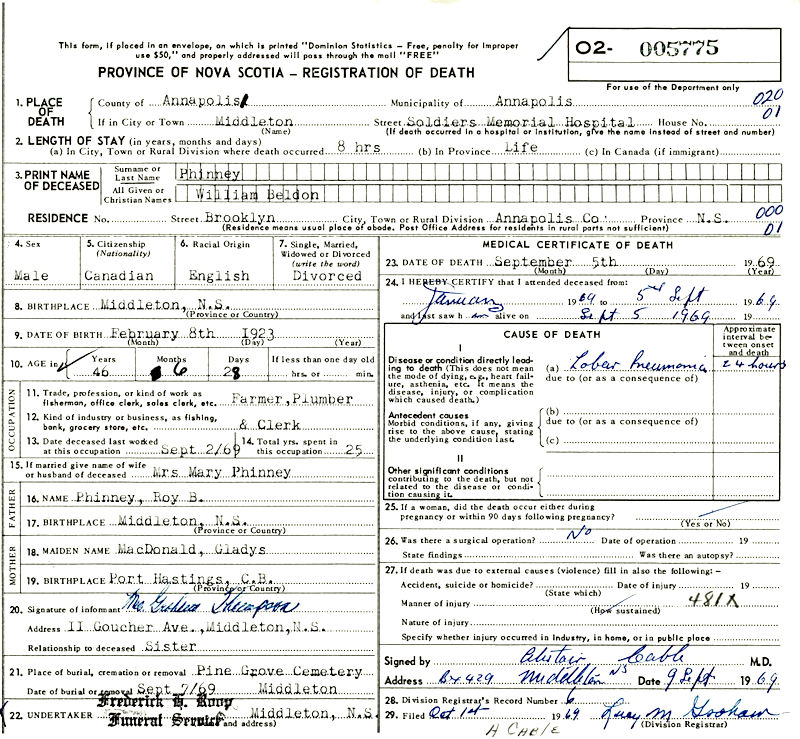 This form, if placed in an envelope, on which is printed "Dominion Statistics – Free, penalty for improper
use $50," and properly addressed will pass through the mail "FREE"
O2- 005775
PROVINCE OF NOVA SCOTIA – REGISTRATION OF DEATH
For use of the Department only
1. PLACE OF DEATH { County of Annapolis Municipality of Annapolis 020
If in City or Town Middleton Street Soldiers Memorial Hospital House No. 01
(Name) (If death occurred in a hospital or institution, give the name instead of street and number)
2. LENGTH OF STAY (in years, months and days)
(a) In City, Town or Rural Division where death occurred 8 hrs (b) In Province Life (c) In Canada (if immigrant)
3. PRINT NAME OF DECEASED { Surname or Last Name Phinney
All Given or Christian Names William Beldon
RESIDENCE No. Street Brooklyn City, Town or Rural Division Annapolis Co. Province N.S. 000
(Residence means usual place of abode. Post Office Address for residents in rural parts not sufficient) 01
4. Sex
Male
5. Citizenship
(Nationality)
Canadian
6. Racial Origin
English
7. Single, Married,
Widowed or Divorced
(write the word)
Divorced
8. BIRTHPLACE Middleton, N.S.
(Province or Country)
9. DATE OF BIRTH February 8th 1923
(Month) (Day) (Year)
10. AGE in Years Months Days If less than one day old
46 6 28 hrs. or min.
OCCUPATION
11. Trade, profession, or kind of work as
fisherman, office clerk, sales clerk, etc. Farmer,Plumber
12. Kind of industry or business, as fishing,
bank, grocery store, etc. & Clerk
13. Date deceased last worked
at this occupation Sept 2/69
14. Total yrs. spent in
this occupation 25
15. If married give name of wife
or husband of deceased Mrs Mary Phinney
FATHER
16. NAME Phinney, Roy B.
17. BIRTHPLACE Middleton, N.S.
(Province or Country)
MOTHER
18. MAIDEN NAME MacDonald, Gladys
19. BIRTHPLACE Port Hastings, C.B.
(Province or Country)
20. Signature of informant Mrs. Graham Thompson
Address 11 Goucher Ave.,Middleton,N.S.
Relationship to deceased Sister
21. Place of burial, cremation or removal Pine Grove Cemetery
Date of burial or removal Sept 7/69 Middleton
22. UNDERTAKER Frederick H. Roop
Funeral Service Middleton, N.S.
and address)
MEDICAL CERTIFICATE OF DEATH
23. DATE OF DEATH September 5th 1969
(Month) (Day) (Year)
24. I HEREBY CERTIFY that I attended deceased from:
January 1969 to 5 Sept 1969
and last saw h im alive on Sept 5 1969 19
CAUSE OF DEATH
Approximate interval between onset and death
I
Disease or condition directly leading to death (This does not mean
the mode of dying, e.g., heart failure, asthenia, etc. It means the
disease, injury, or complication
which caused death.)
(a) Lobar Pneumonia 24 hours
due to (or as a consequence of)
Antecedent causes
Morbid conditions, if any, giving
rise to the above cause, stating
the underlying condition last.
(b)
due to (or as a consequence of)
(c)
II
Other significant conditions
contributing to the death, but not
related to the disease or condition causing it.
25. If a woman, did the death occur either during
pregnancy or within 90 days following pregnancy?
(Yes or No)
26. Was there a surgical operation? No Date of operation 19
State findings Was there an autopsy?
27. If death was due to external causes (violence) fill in also the following:–
Accident, suicide or homicide? Date of injury 19
(State which)
Manner of injury 481X
(How sustained)
Nature of injury
Specify whether injury occurred in industry, in home, or in public place
Signed by Alistair Cable M.D.
Address Bx 429 Middleton NS Date 9 Sept 1969
28. Division Registrar's Record Number
29. Filed Oct 1st 1969 M Graham
(Division Registrar)
A CABLE